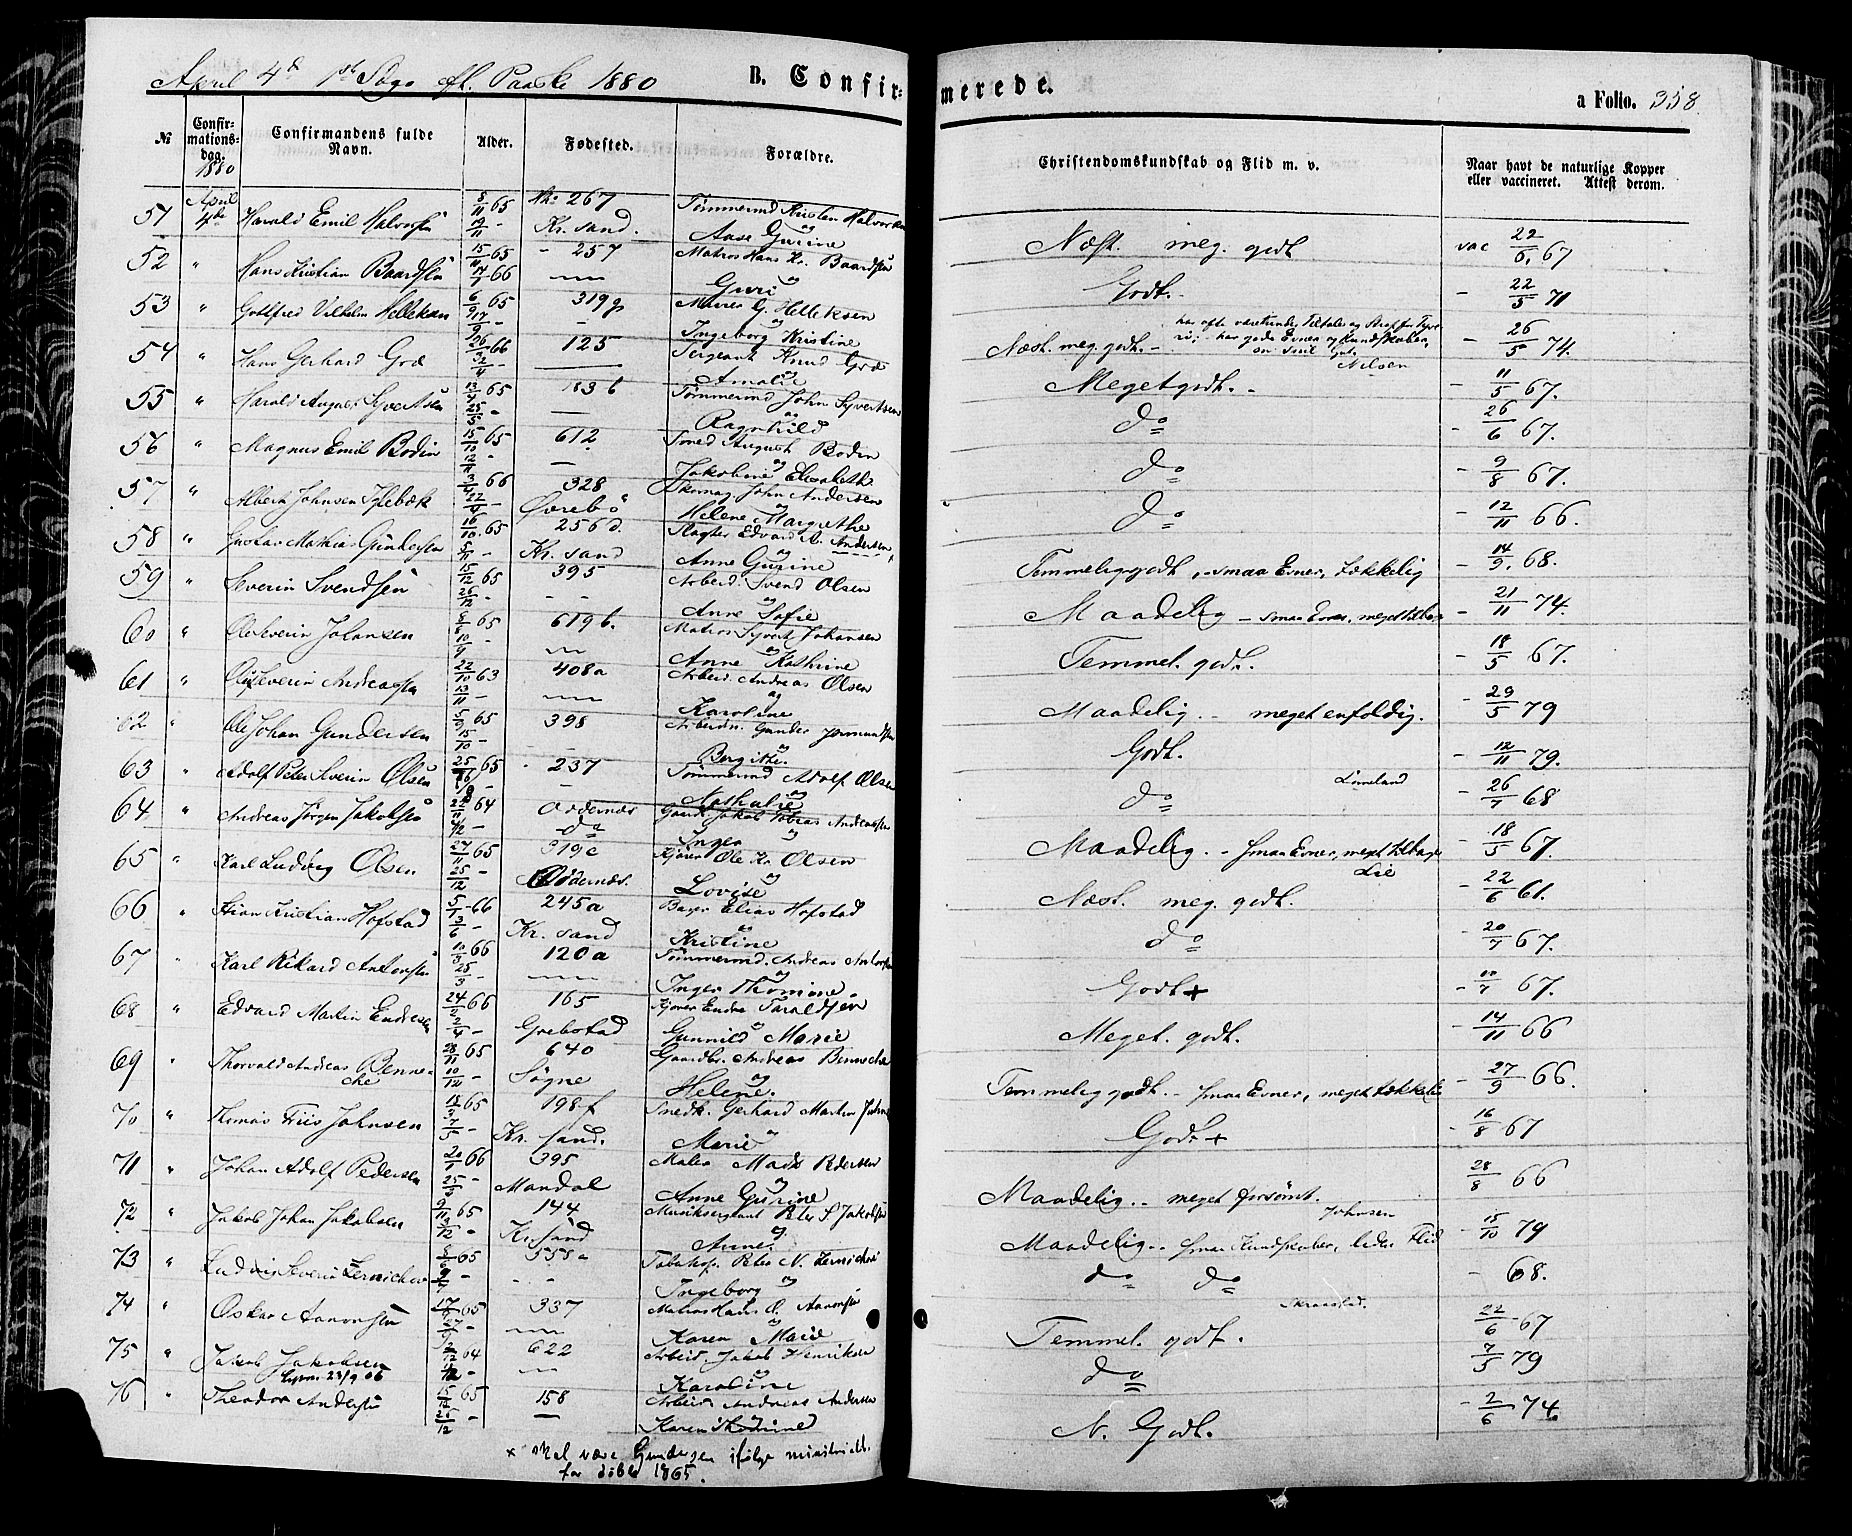 April 4de 1ste Søgn. Ef. Paaske 1880 B. Confirmerede. a Folio. 358
№ Confirmationsdag. 1880 Confirmandens fulde Navn. Alder. Fødested. Forældre. Christendomskundskab og Flid m. v. Naar havt de naturlige Kopper eller vaccineret. Attest derom.
57 April 4de Harald Emil Halvorsen 5/11 65 19/11 - No 267 Kr. sand. Tømmermd Kristen Halvorsen og Aase Gurine Næst. meg. godt vac 22/6 67
52 " Hans Kristian Baardsen 15/11 65 17/1 66 - 257 Matros Hans Kr. Baardsen og Guri Godt. - 22/5 71
53 " Gotlfred Vilhelm Helleksen 6/9 65 17/9 - 319 g Murer G. Helleksen og Ingeborg Kristine Næst. meg. godt. - 26/5 74.
54 " Hans Gerhard Groe 66 125 Sergeant Knud Groe og Amalie Nilsen Meget godt. - 11/5 67.
55 " Harald August Syvertsen 13/4 65 25/5 - 183 b Tømmermd John Syvertsen og Ragnhild do - 26/6 67.
56 " Magnus Emil Bodin 15/10 65 612 Smed August Bodin og Jakobine Elisabeth do - 9/8 67.
57 " Albert Johnsen 66 328 Øvrebø Skomag. John Andersen og Helene Margrethe do - 12/11 66.
58 " Gustav Mathias Gundersen 16/10 65 5/11 - 256 d. Kr. sand Slagter Edvard A. Andersen og Anne Gurine Temmelig godt, smaa Evner, tækkelig - 14/9 68.
59 " Severin Svendsen 15/12 65 26/12 - 395 Arbeid. Svend Olsen og Anne Sofie Maadelig - smaa Evner, meget tilbage - 21/11 74.
60 " Ole Severin Johansen 8/6 65 10/9 - 619 b. Matros Syvert Johansen og Anne Kathrine Temmel. godt. - 18/5 67.
61 " Ole Severin Andreassen 22/10 63 13/11 - 408 a Arbeid. Andreas Olsen og Karoline Maadelig. - meget enfoldig. - 29/5 79
62 " Ole Johan Gundersen 5/9 65 15/10 - 398 Arbeidm. Gunder og Bergithe. Godt. - 12/11 79.
63 " Adolf Peter Severin Olsen 25/6 65 - 237 Tømmermd Adolf Olsen og Nathalie do - 26/7 68
64 " Andreas Jørgen Jakobsen 64 Oddernæs do Gaardb. Jakob Tobias Andreassen og Inger Maadelig. - smaa Evner, meget tilbage - 18/5 67.
65 " Karl Ludvig Olsen 27/11 65 25/12 - 319 c Oddernæs. Kjører Ole Kr. Olsen og Lovise Lie Næst. meg. godt. - 22/6 61.
66 " Kristian Hofstad 5/1 66 3/6 - 245 a Kr. sand Bager Elias Hofstad og Kristine do - 20/7 67.
67 " Karl Rikard Antonsen 10/3 66 25/3 - 120 a Tømmermd. Andreas Antonsen og Inger Thomine. Godt + 67.
68 " Edvard Martin Endresen 24/2 66 2/4 - 165 Grebstad Kjører Endre Taraldsen og Gunnild Marie Meget. godt. - 14/11 66
69 " Thorvald Andreas Benneche 28/11 65 10/12 - 640 Søgne Gaardbr. Andreas Benneche og Helene. Temmelig godt. - smaa Evner, meget tækkelig - 27/9 66.
70 " Thomas Friis Johnsen 18/3 65 7/5 - 198 f Kr. sand. Snedk. Gerhard Martin Johnsen og Marie Godt + - 16/8 67
71 " Johan Adolf Pedersen 20/1 66 25/3 - 395 Mandal Maler Mads Pedersen og Anne Gurine Maadelig. - meget forsømt. 28/8 66
72 " Jakob Johan Jakobsen 9/11 65 - 144 Kr. sand Musiksergeant Peter S Jakobsen og Anne. Johnsen Maadelig. - smaa Kundskaber, liden Flid - 15/10 79
73 " Ludvig Severin 65 555 a Peter N. og Ingeborg do do - 68.
74 " Oskar Aanonsen 65 27/9 - 337 Matros Hans O. Aanonsen og Karen Marie Temmel. godt. 22/6 67
75 " Jakob Jakobsen 64 - 622 Arbeid. Jakob Henriksen og Karoline do 7/5 79
76 " Theodor Andersen 65 158 Arbeid. Andreas Andersen og Karen N. Godt. - 2/6 74
x skal være Gundersen ifølge ministerialb.
for døbte 1865.